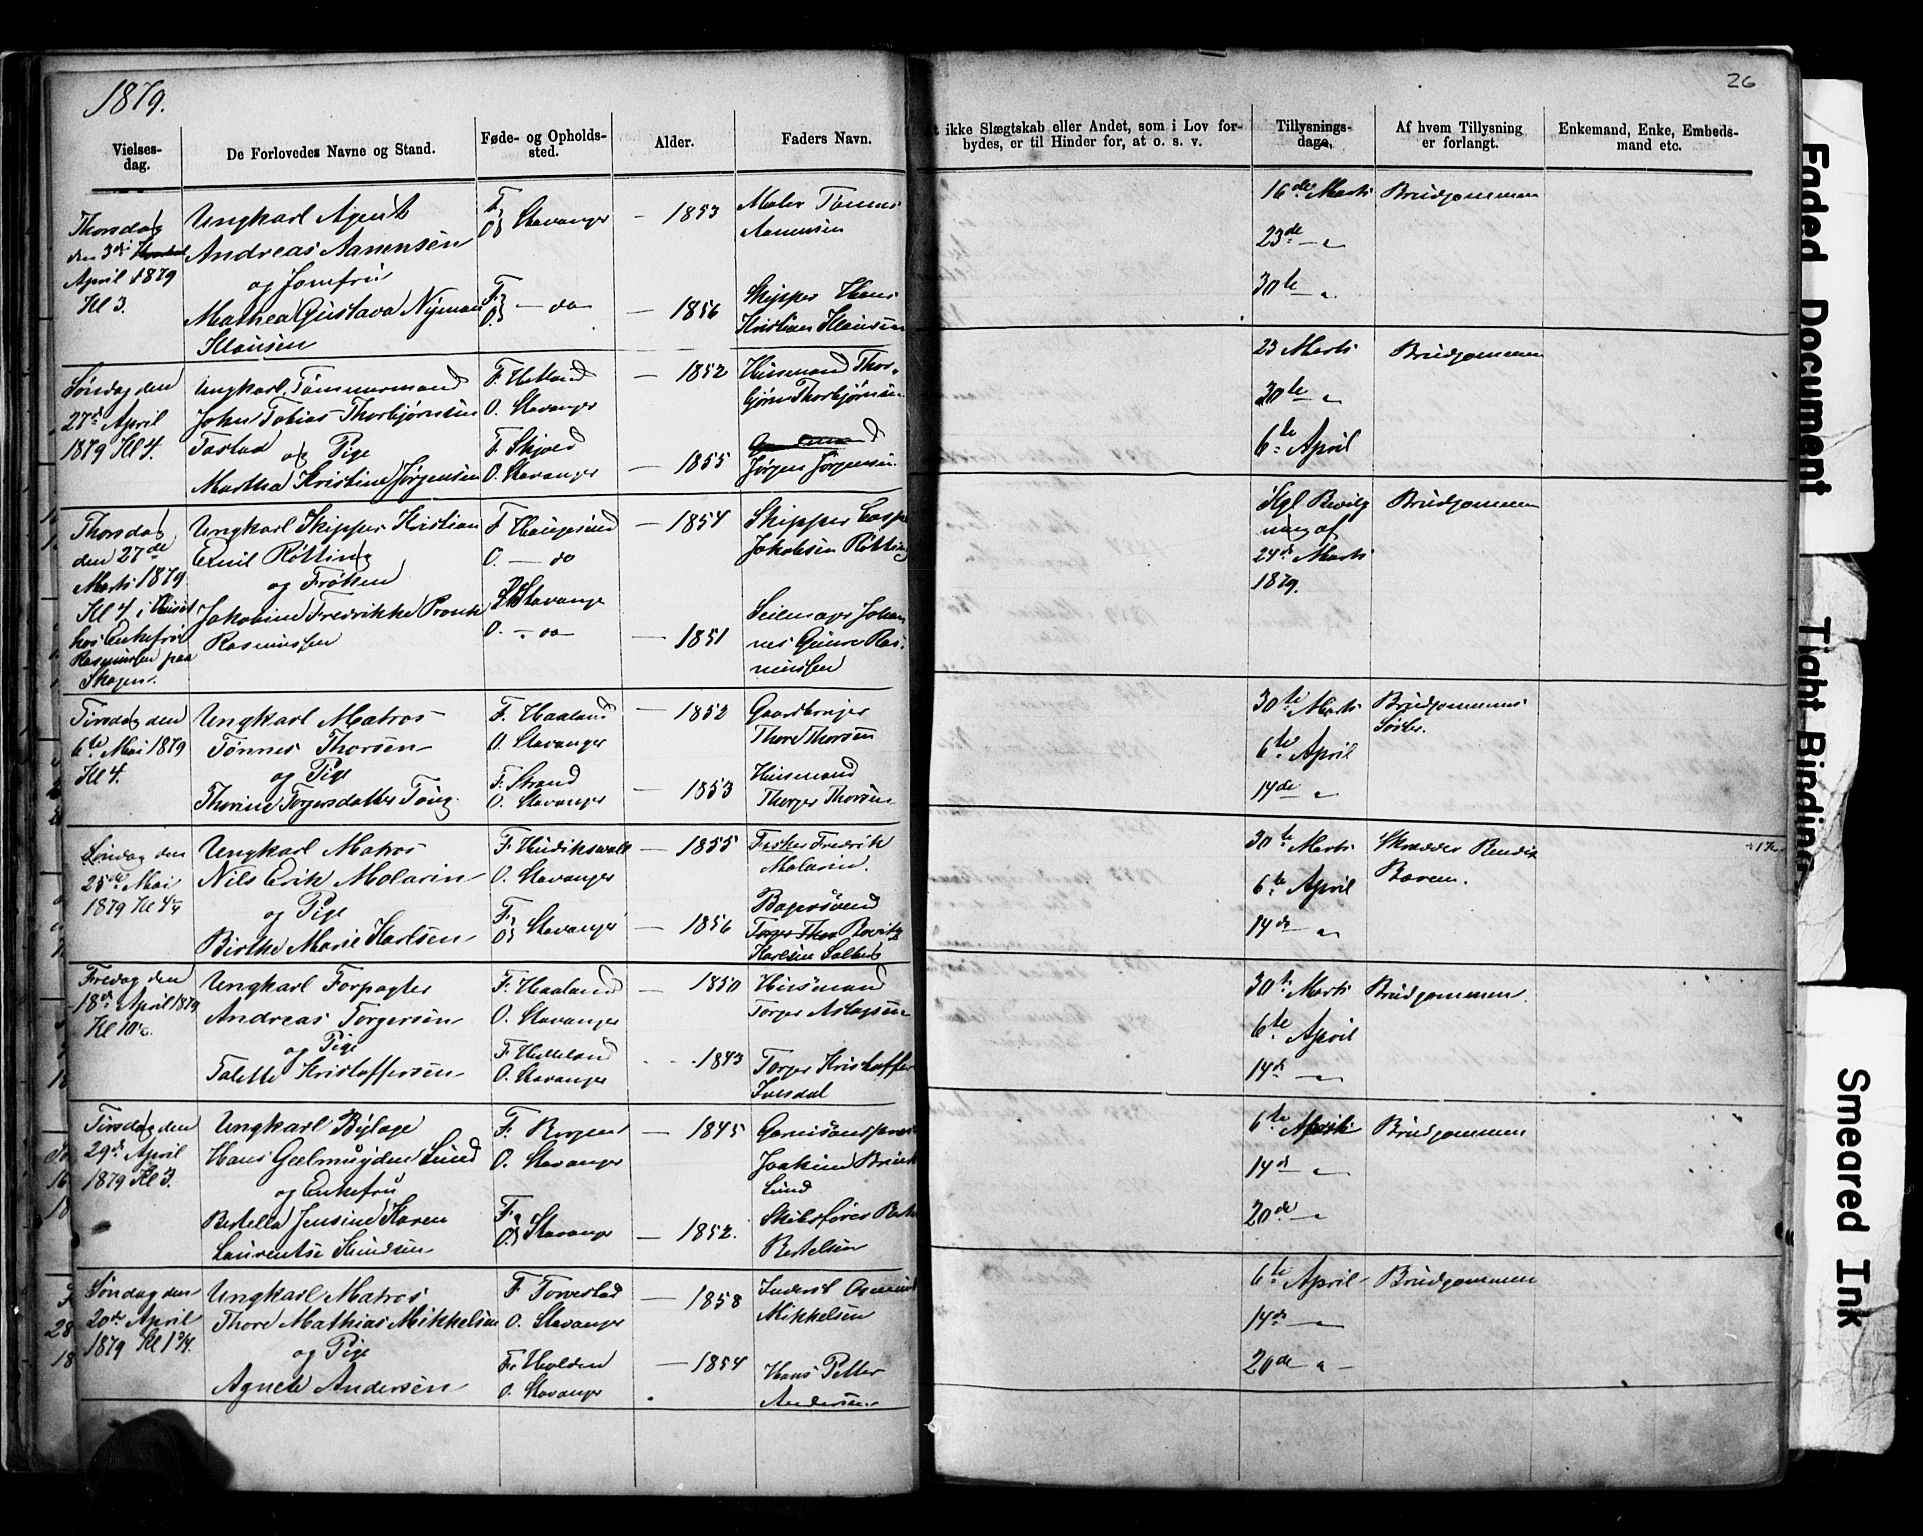 1879.
26
Vielses-
dag.
De Forlovedes Navne og Stand.
Føde- og Opholds-
sted.
Alder.
Faders Navn.
ikke Slægtskab eller Andet, som i Lov for-
bydes, er til Hinder for, at o. s. v.
Tillysnings-
dage.
Af hvem Tillysning
er forlangt.
Enkemand, Enke, Embeds-
mand etc.
Thorsdag
den 3die
April 1879
Kl 3.
Ungkarl Agent
Andreas Aanensen
og Jomfru
Mathea Gustava Nyman
Klausen
F.
O. Stavanger
F.
O. — do
— 1853
— 1856
Maler Tønnes
Aanensen
Skipper Hans
Kristian Klausen
16de Marts
23de — "
30te — "
Brudgommen
Søndag den
27de April
1879 Kl 4.
Ungkarl, Tømmermand
John Tobias Thorbjørnsen
Tastad og Pige
Martha Kristine Jørgensen
F. Hetland
O. Stavanger
F. Skjold
O. Stavanger
— 1852
— 1855
Huusmand Thor-
bjørn Thorbjørnsen
Jørgen Jørgensen
23 Marts
30te "
6te April
Brudgommen
Thorsdag
den 27de
Marts 1879
Kl 4, i Huset
hos Enkefru
Rasmussen paa
Skagen.
Ungkarl Skipper Kristian
Emil Røtting
og Frøken
Jakobine Fredrikke Pronk
Rasmussen
F Haugesund
O. — do
Stavanger
O. — do
— 1854
— 1851
Skipper Casper
Jakobsen Røtting
Seilmager Johan
nes Gunn Ras-
mussen
Kgl Bevilg
ning af
24de Marts
1879.
Brudgommen
Tirsdag den
6te Mai 1879
Kl 4.
Ungkarl Matros
Tønnes Thorsen
og Pige
Thorine Torgersdatter Toug
F. Haaland
O. Stavanger
F. Strand
O. Stavanger
— 1852
— 1853
Gaardbruger
Thore Thorsen
Huusmand
Thorger Thorsen
30te Marts
6te April
14de "
Brudgommens
Søster.
Søndag den
25de Mai
1879 Kl 4¼
Ungkarl Matros
Nils Erik Molarin
og Pige
Birthe Marie Karlsen
F. Hudikswall
O. Stavanger
F.
O. Stavanger
— 1855
— 1856
Fisker Fredrik
Molarin
Bagersvend
Karlsen
30te Marts
6te April
14de "
Skrædder Bendix
Boren.
Fredag den
18de April 1879
Kl 10½
Ungkarl Forpagter
Andreas Torgersen
og Pige
Talette Kristoffersen
F. Haaland
O. Stavanger
F. Helleland
O. Stavanger
— 1850
— 1843
Huusmand
Torger Aslagsen
Torger Kristoffer
30te Marts
6te April
14de "
Brudgommen.
Tirsdag den
29de April
1879 Kl 3.
Ungkarl Bylæge
Hans Geelmuyden Lund
og Enkefru
Bertella Jensine Karen
Laurentse Knudsen
F. Bergen
O. Stavanger
F.
O. Stavanger
— 1845
— 1852.
Joakim
Lund
Skibsfører
Bertelsen
6te April
14de "
20de — "
Brudgommen
Søndag den
20de April
1879 Kl 1¾.
Ungkarl Matros
Thore Mathias Mikkelsen
og Pige
Agnete Andersen
F. Torvestad
O. Stavanger
F. Holden
O. Stavanger
— 1858
— 1854
Inderst Osmund
Mikkelsen
Hans Petter
Andersen
6te April
14de "
20de " —
Brudgommen
Faded Document
Tight Binding
Smeared Ink